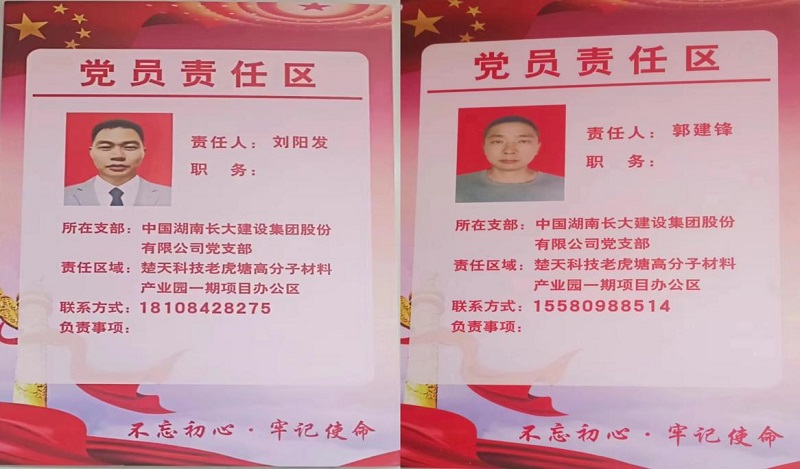 党员责任区
责任人：刘阳发
职　务：
所在支部：中国湖南长大建设集团股份
有限公司党支部
责任区域：楚天科技老虎塘高分子材料
产业园一期项目办公区
联系方式：18108428275
负责事项：
不忘初心·牢记使命
党员责任区
责任人：郭建锋
职　务：
所在支部：中国湖南长大建设集团股份
有限公司党支部
责任区域：楚天科技老虎塘高分子材料
产业园一期项目办公区
联系方式：15580988514
负责事项：
不忘初心·牢记使命